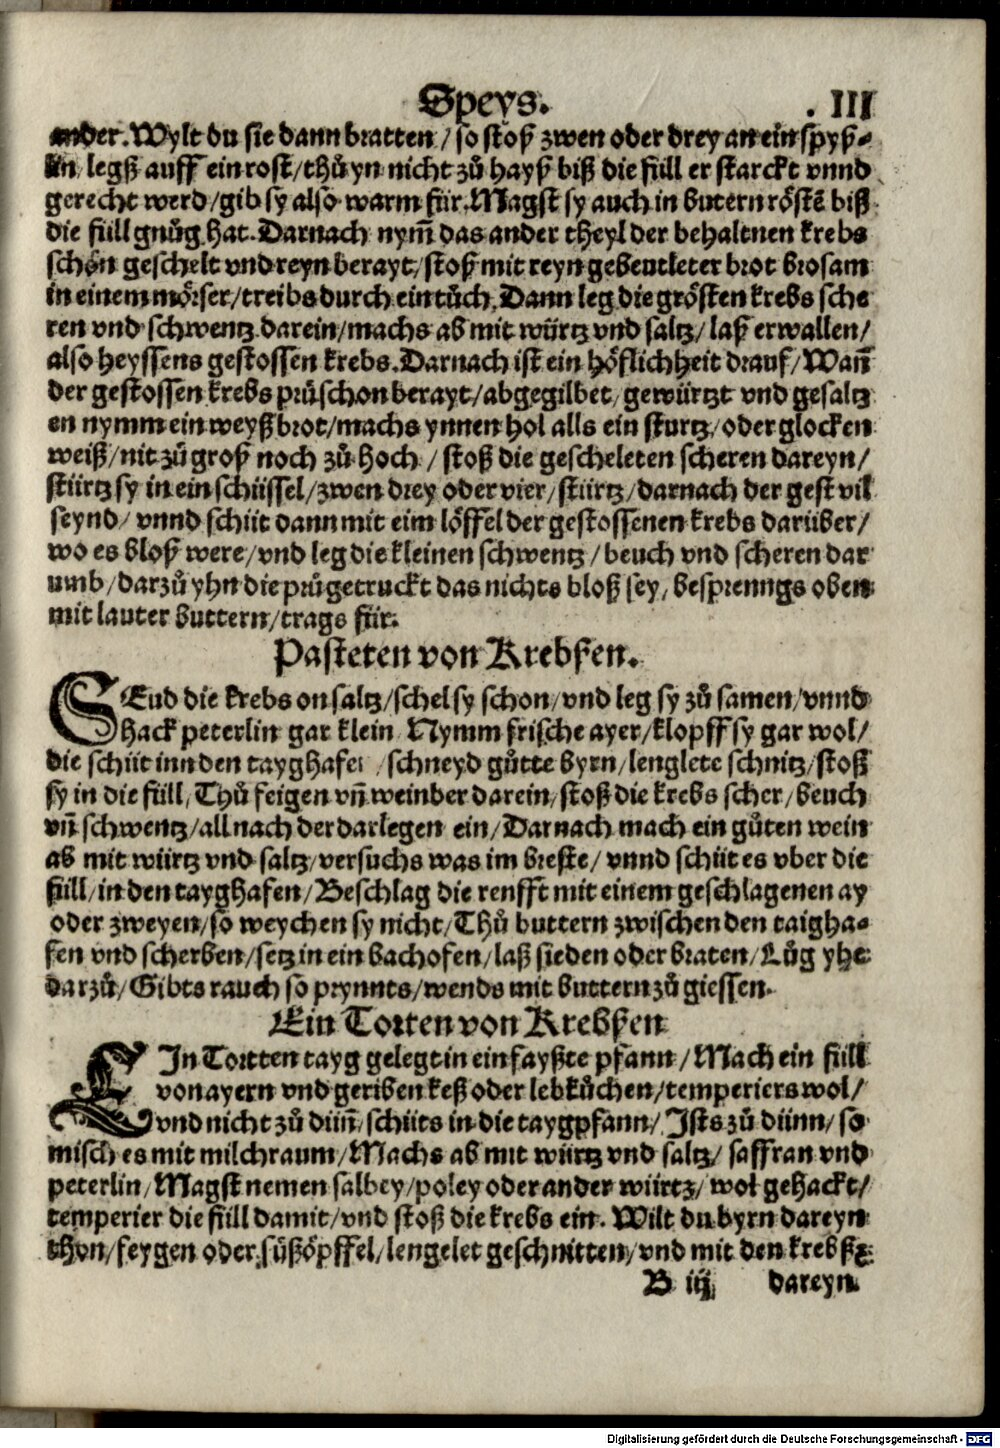 Speys. . III
ander. Wylt du sie dann bratten / so stoß zwen oder drey an ein spyß-
lin / legß auff ein rost / thů yn nicht zů hayß biß die füll er starckt vnnd
gerecht werd / gib sy also warm für. Magst sy auch in butern röstē biß
die füll gnůg hat. Darnach nym̃ das ander theyl der behaltnen krebs
schön geschelt vnd reyn berayt / stoß mit reyn gebeutleter brot brosam
in einem mörser / treibs durch ein tůch. Dann leg die grösten krebs sche
ren vnd schwentz darein / machs ab mit würtz vnd saltz / laß erwallen /
also heyssens gestossen krebs. Darnach ist ein höflichheit drauf / Wañ
der gestossen krebs prü schon berayt / abgegilbet / gewürtzt vnd gesaltz
en nymm ein weyß brot / machs ynnen hol alls ein sturtz / oder glocken
weiß / nit zů groß noch zů hoch / stoß die gescheleten scheren dareyn /
stürtz sy in ein schüssel / zwen drey oder vier / stürtz / darnach der gest vil
seynd / vnnd schüt dann mit eim löffel der gestossenen krebs darüber /
wo es bloß were / vnd leg die kleinen schwentz / beuch vnd scheren dar
umb / darzů yhn die prü getruckt das nichts bloß sey / besprenngs oben
mit lauter buttern / trags für.
Pasteten von Krebsen.
SEud die krebs on saltz / schel sy schon / vnd leg sy zů samen / vnnd
hack peterlin gar klein Nymm frische ayer / klopff sy gar wol /
die schüt inn den tayghafe / schneyd gůtte byrn / lenglete schnitz / stoß
sy in die füll / Thů feigen vñ weinber darein / stoß die krebs scher / beuch
vñ schwentz / all nach der darlegen ein / Darnach mach ein gůten wein
ab mit würtz vnd saltz / versuchs was im breste / vnnd schüt es vber die
füll / in den tayghafen / Beschlag die renfft mit einem geschlagenen ay
oder zweyen / so weychen sy nicht / Thů buttern zwischen den taigha-
fen vnd scherben / setz in ein bachofen / laß sieden oder braten / Lůg yhe
darzů / Gibts rauch so prynnts / wends mit buttern zů giessen.
Ein Torten von Krebsen
EIn Tortten tayg gelegt in ein fayßte pfann / Mach ein füll
von ayern vnd geriben keß oder lebkůchen / temperiers wol /
vnd nicht zů düñ / schüts in die taygpfann / Ists zů dünn / so
misch es mit milchraum / Machs ab mit würtz vnd saltz / saffran vnd
peterlin / Magst nemen salbey / poley oder ander würtz / wol gehackt /
temperier die füll damit / vnd stoß die krebs ein. Wilt du byrn dareyn
thon / feygen oder süßöpffel / lengelet geschnitten / vnd mit den krebßē
B iij dareyn
Digitalisierung gefördert durch die Deutsche Forschungsgemeinschaft - DFG